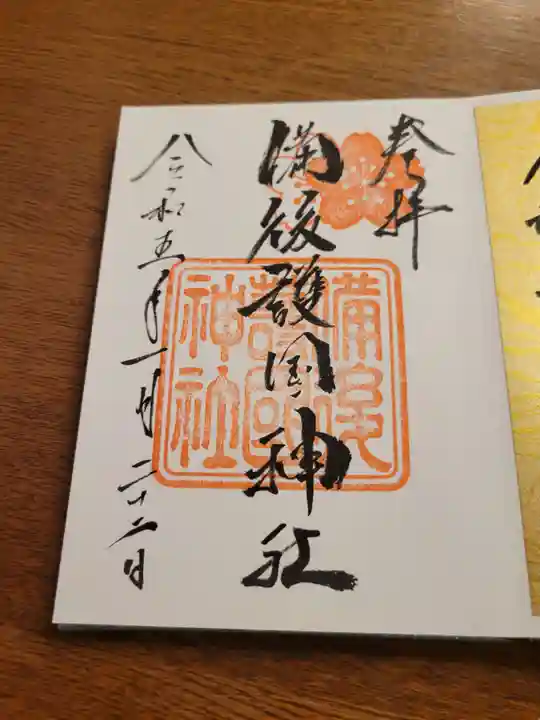 奉拝
備後護国神社
備後
護國
神社
令和五年一月二十二日